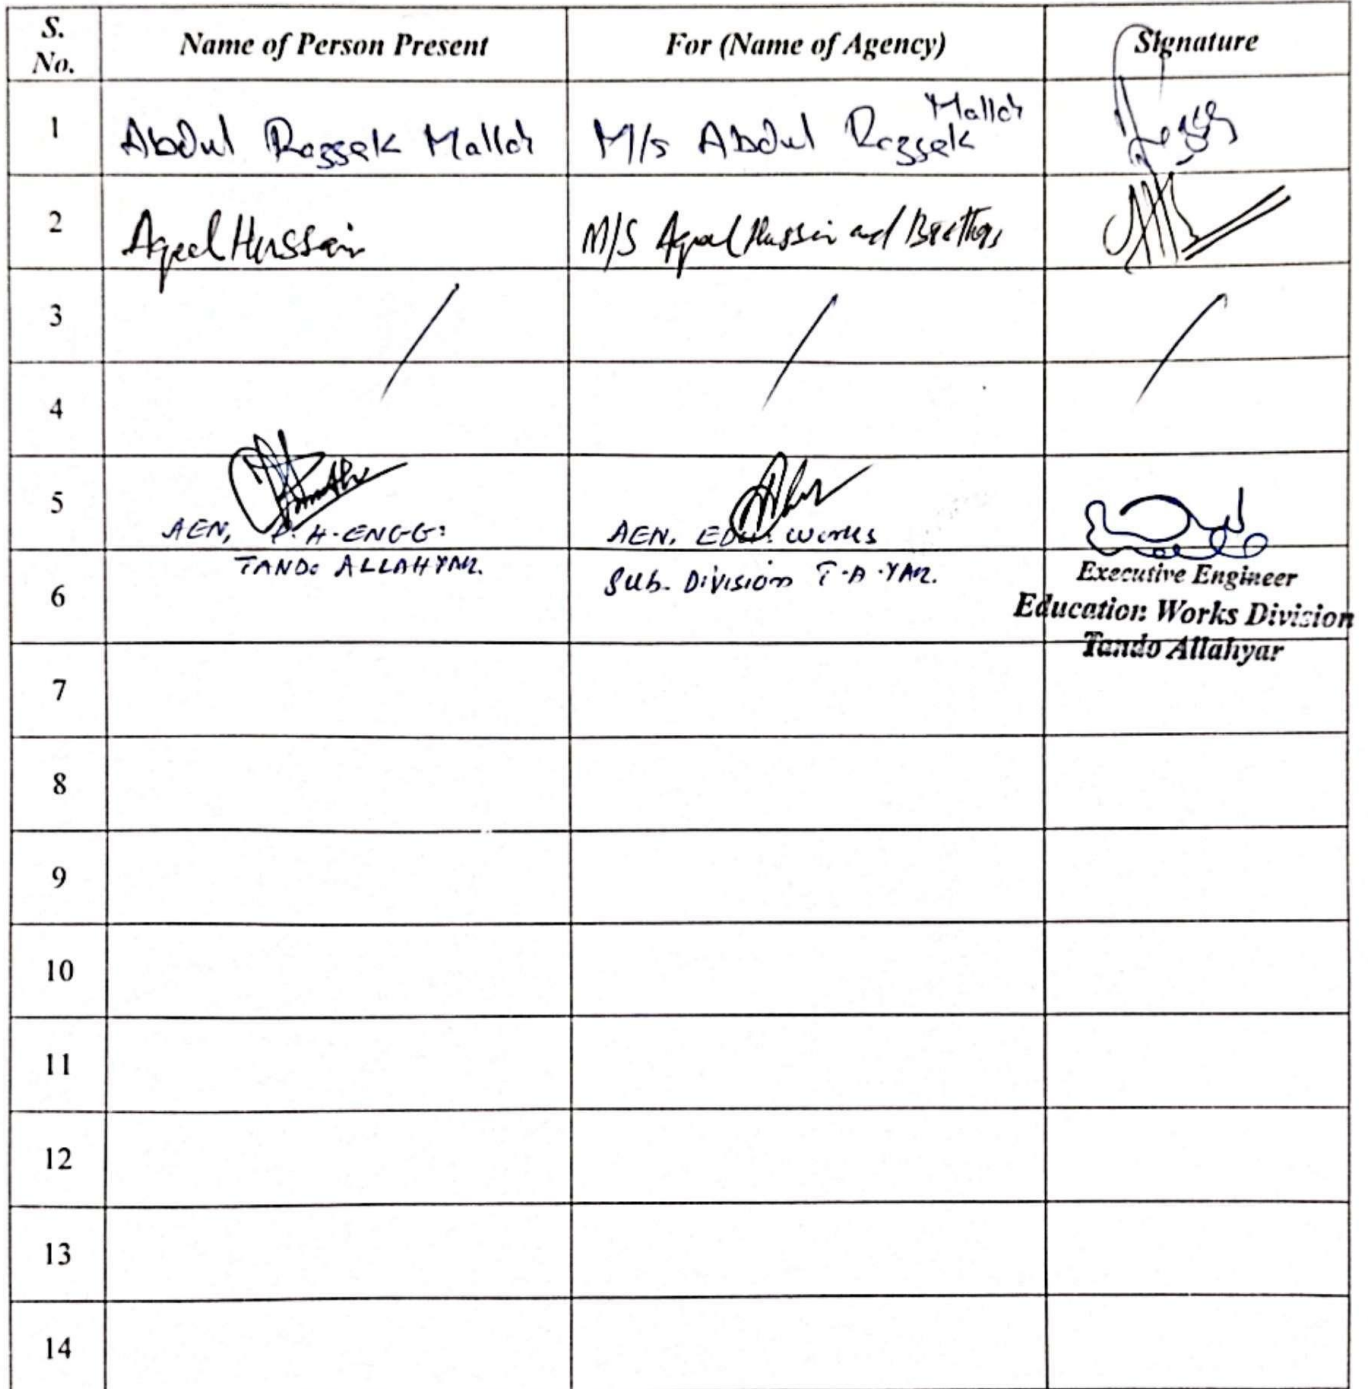 S. No. Name of Person Present For (Name of Agency) Signature
1 Abdul Razzak Mallah M/s Abdul Razzak Mallah
2 Aqeel Hussain M/S Aqeel Hussain and Brothers
3
4
5
AEN, P.H-ENGG: AEN. EDU: WORKS
TANDO ALLAHYAR. SUB. DIVISION T-A-YAR. Executive Engineer
6 Education Works Division
Tando Allahyar
7
8
9
10
11
12
13
14